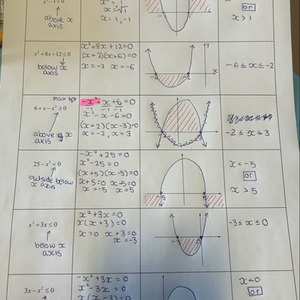 x²-1>0
above x
axis
x = √1
x = 1, -1
or
x > 1
x²+8x+12≤0
below x
axis
x²+8x+12=0
(x+2)(x+6)=0
x=-2 x=-6
-6≤x≤-2
max bp
6+x-x²≥0
above x
axis
-x²+x+6=0
-1 -1 -1 -1
x²-x-6=0
(x+2)(x-3)=0
x=-2, x=3
-2≤x≤3
25-x²<0
outside below
x axis
-x²+25=0
x²-25=0
(x+5)(x-5)=0
x+5=0 x-5=0
x=-5 x=5
x<-5
or
x>5
x²+3x≤0
below x
axis
x²+3x=0
x(x+3)=0
x=0 x+3=0
x=-3
-3≤x≤0
3x-x²≤0
-x²+3x=0
x²-3x=0
x(x-3)=0
x<0
or